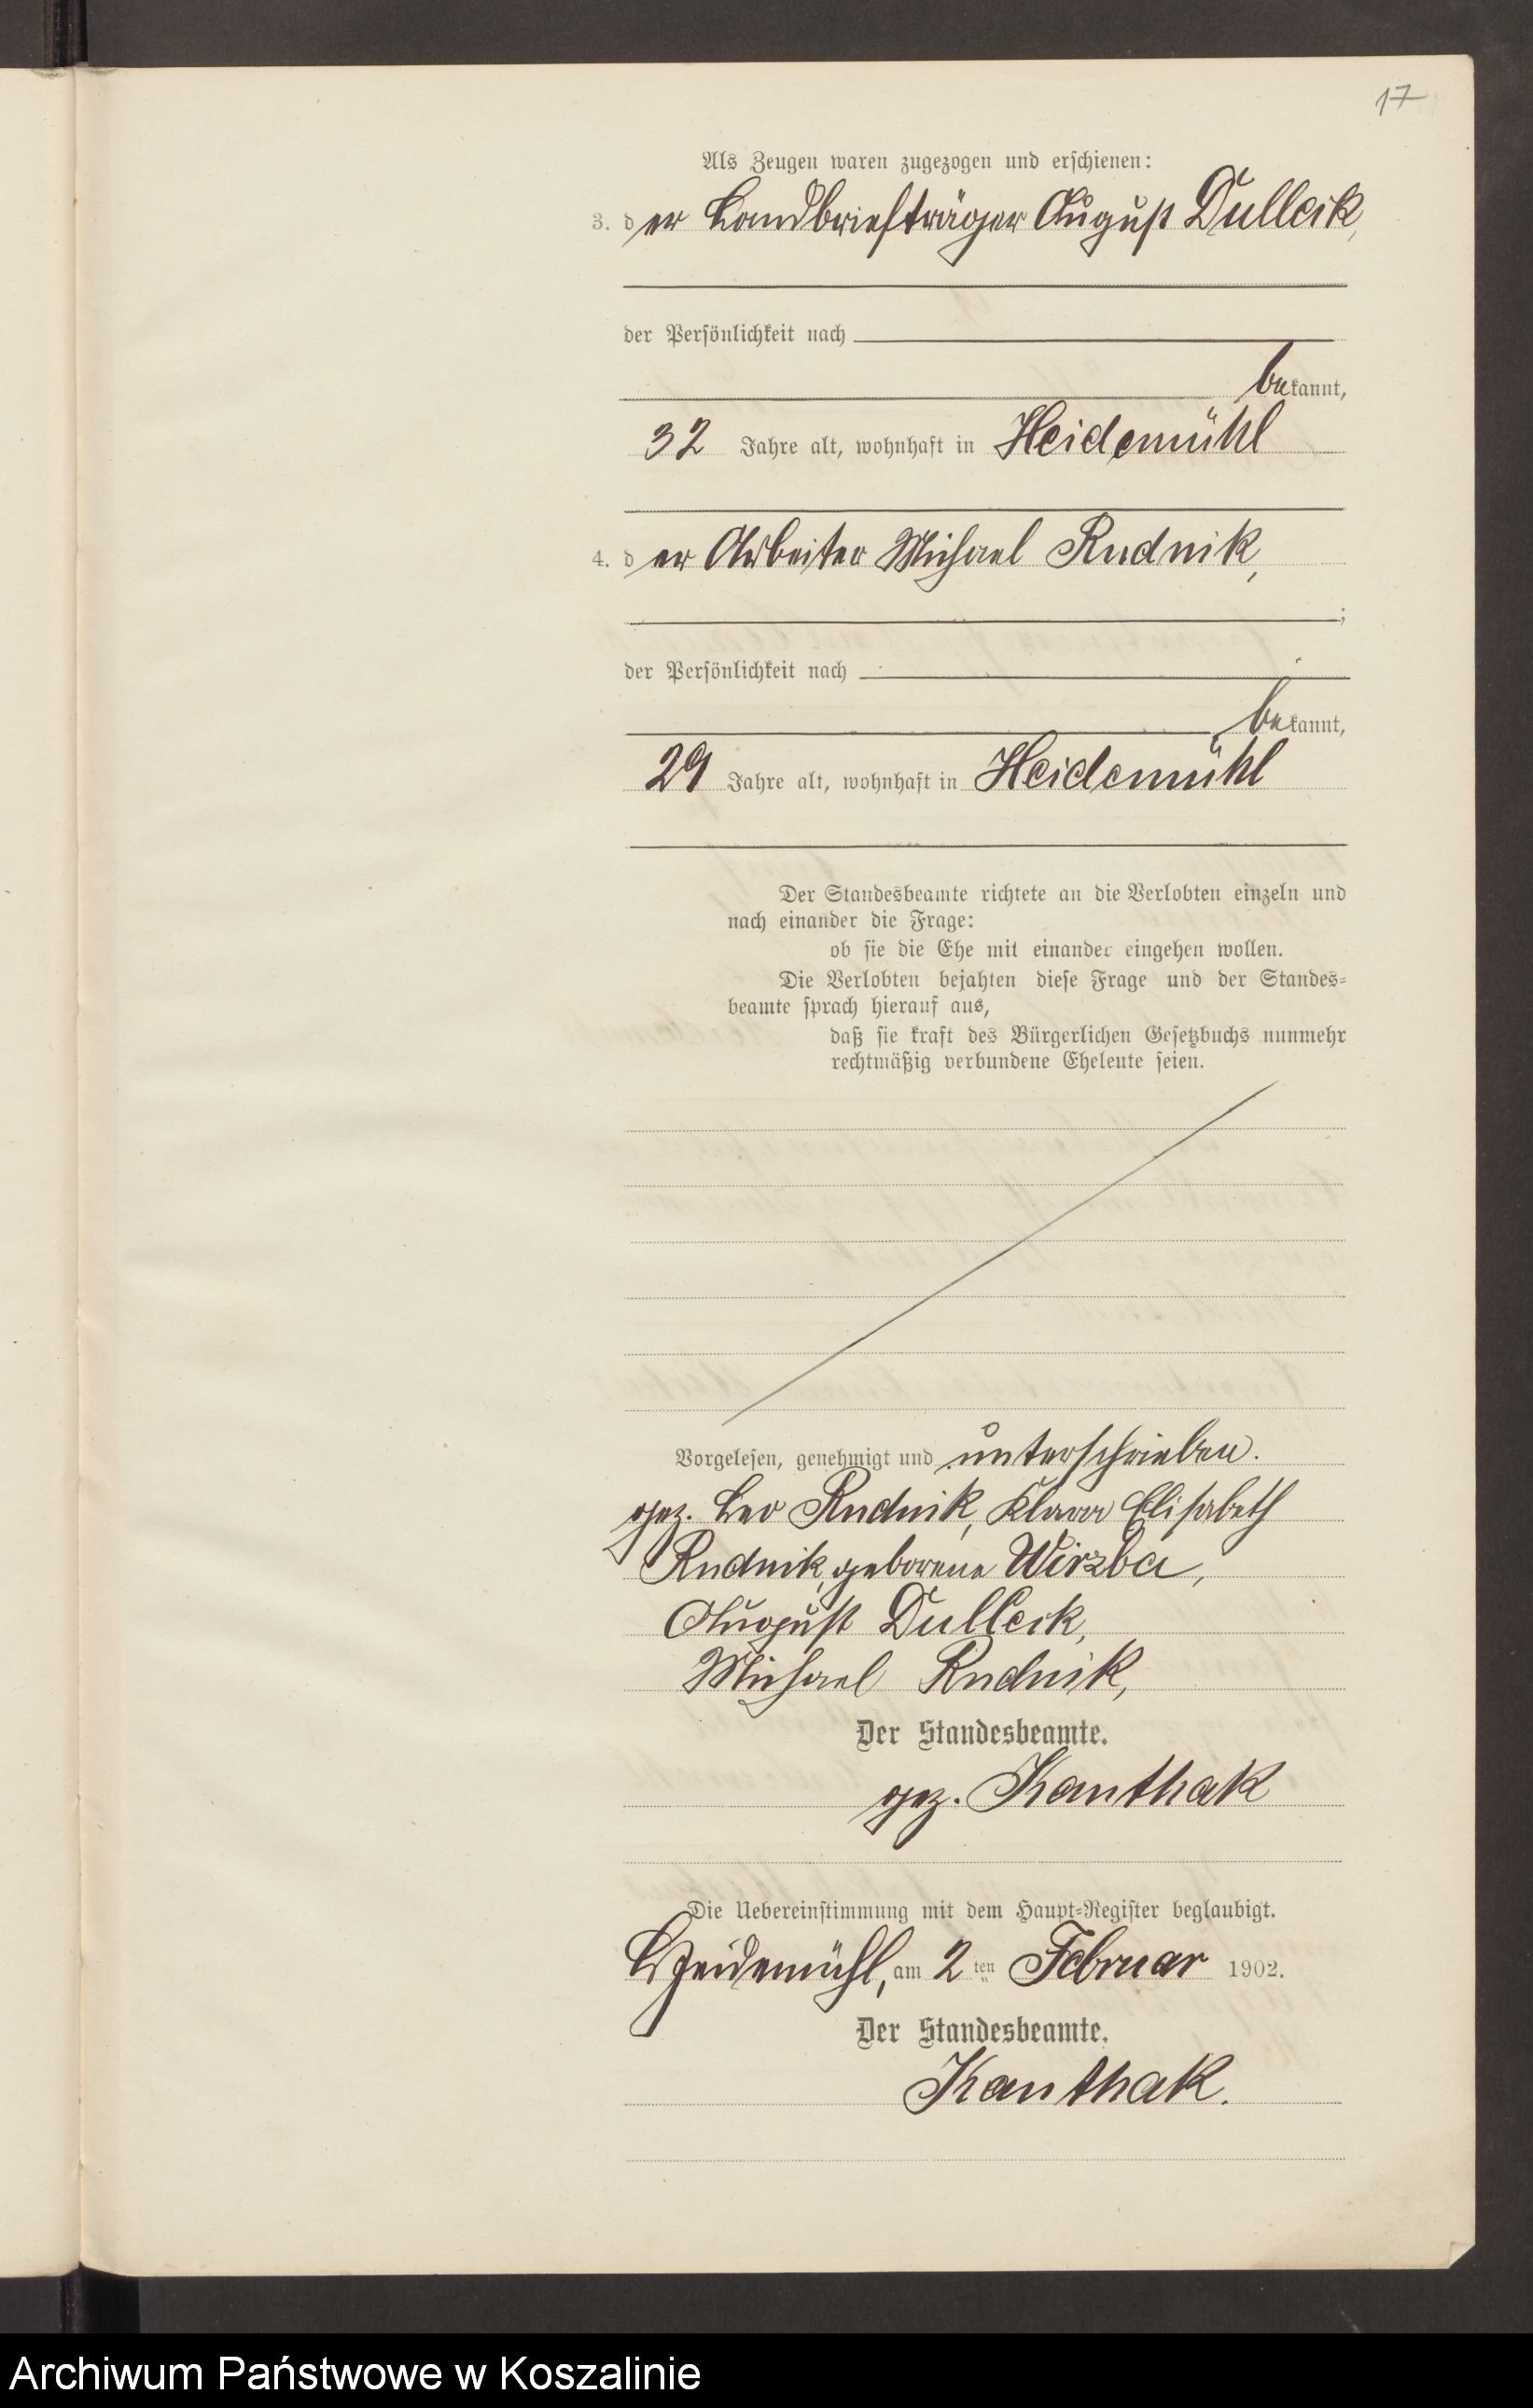 17
Als Zeugen waren zugezogen und erschienen:
3. der Landbriefträger August Dulleck,
der Persönlichkeit nach
bekannt,
32 Jahre alt, wohnhaft in Heidemühl
4. der Arbeiter Michael Rudnik,
;
der Persönlichkeit nach
bekannt,
29 Jahre alt, wohnhaft in Heidemühl
Der Standesbeamte richtete an die Verlobten einzeln und
nach einander die Frage:
ob sie die Ehe mit einander eingehen wollen.
Die Verlobten bejahten diese Frage und der Standes-
beamte sprach hierauf aus,
daß sie kraft des Bürgerlichen Gesetzbuchs nunmehr
rechtmäßig verbundene Eheleute seien.
Vorgelesen, genehmigt und unterschrieben.
gez. Leo Rudnik, Klara Elisabeth
Rudnik, geborene Wirzba,
August Dulleck,
Michael Rudnik,
Der Standesbeamte.
gez. Kanthak
Die Uebereinstimmung mit dem Haupt-Register beglaubigt.
Heidemühl, am 2ten Februar 1902.
Der Standesbeamte.
Kanthak.
Archiwum Państwowe w Koszalinie